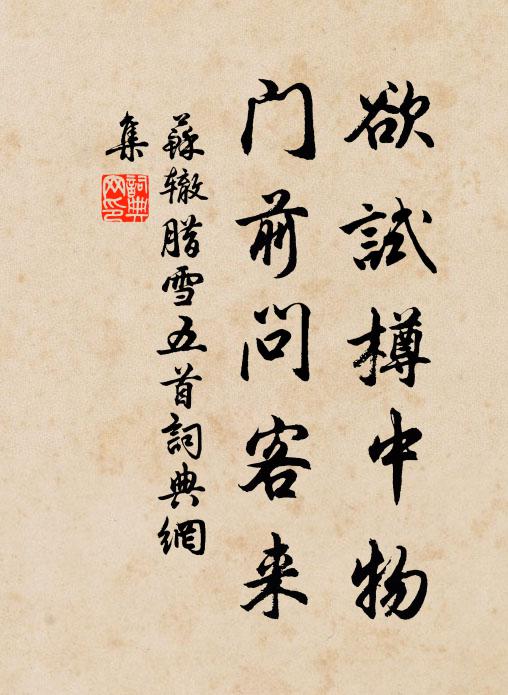 欲試樽中物
门前问客来
蘇辙腊雪五首詞典網
集
詞典
网印